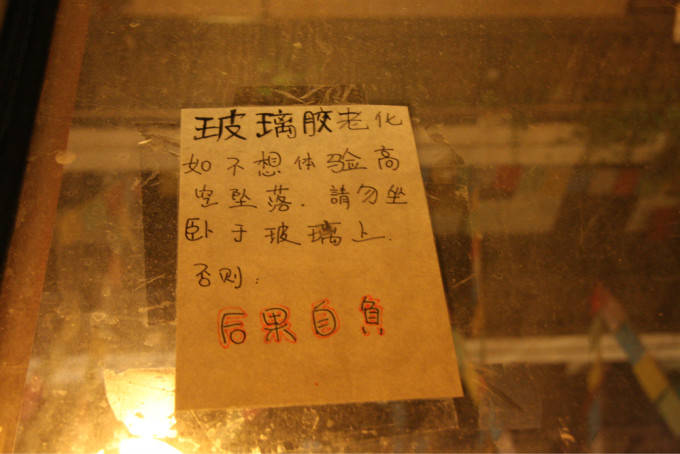 玻璃胶老化
如不想体验高
空坠落.請勿坐
卧于玻璃上.
否则:
后果自負